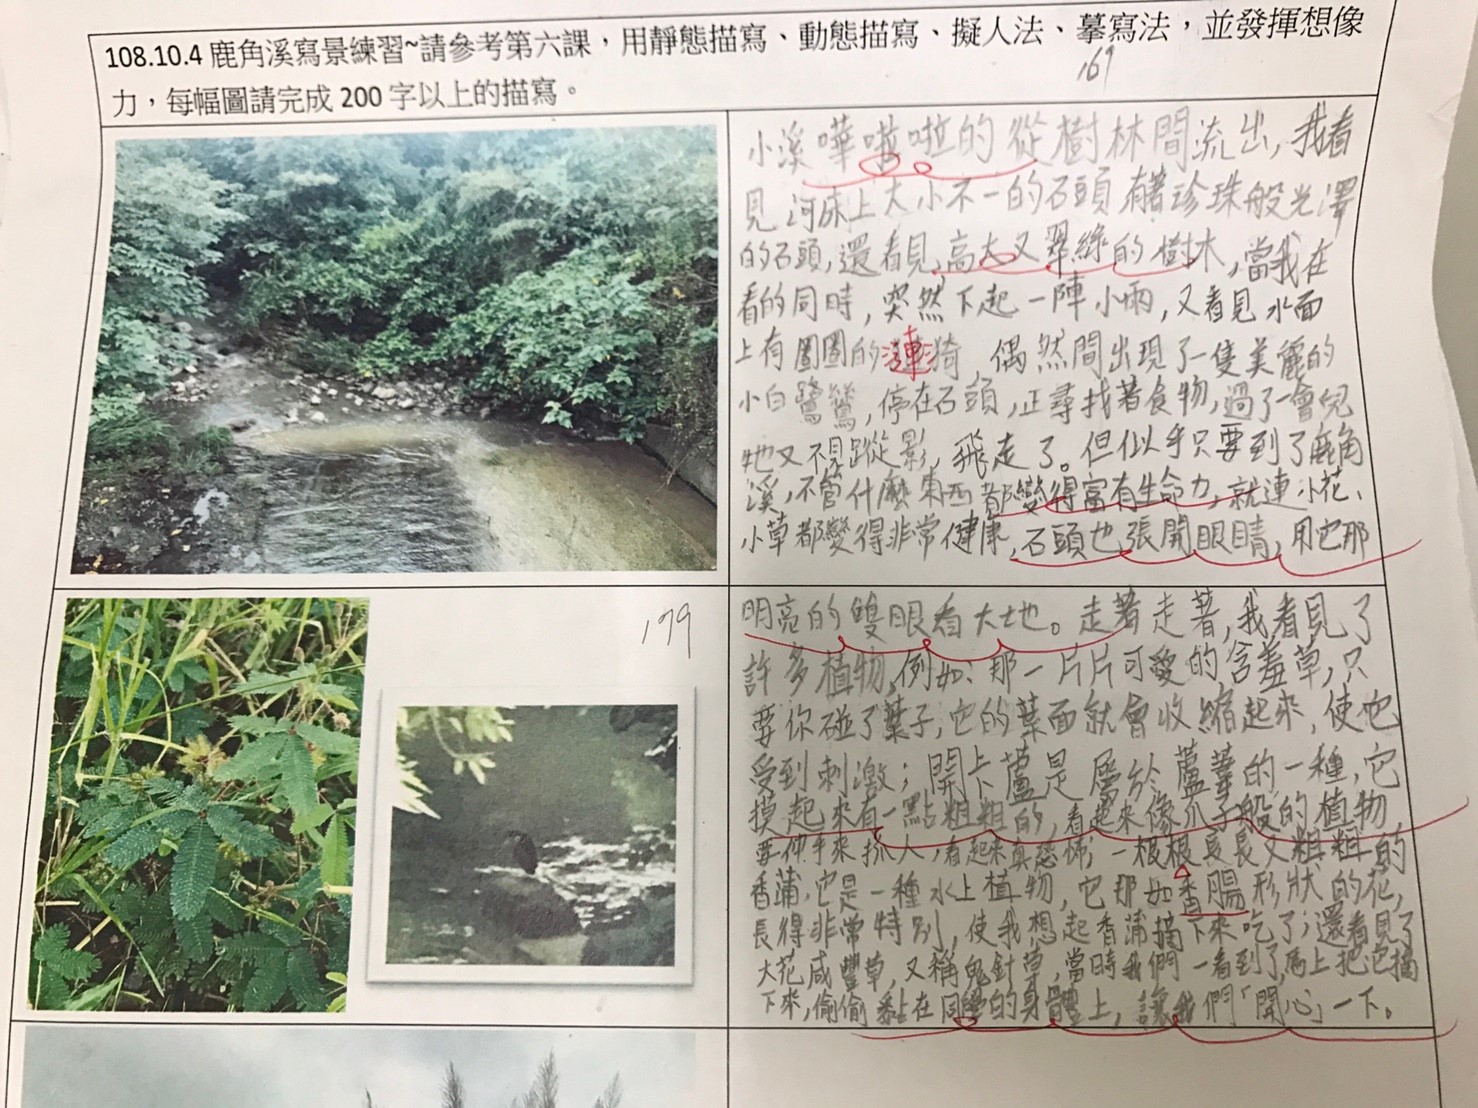 108.10.4 鹿角溪寫景練習~請參考第六課，用靜態描寫、動態描寫、擬人法、摹寫法，並發揮想像
力，每幅圖請完成 200 字以上的描寫。
169
小溪嘩啦啦的從樹林間流出，我看
見河床上大小不一的石頭有著珍珠般光澤
的石頭，還看見高大又翠綠的樹木，當我在
看的同時，突然下起一陣小雨，又看見水面
上有圈圈的漣漪，偶然間出現了一隻美麗的
小白鷺鷥，停在石頭，正尋找著食物，過了一會兒
牠又不見蹤影，飛走了。但似乎只要到了鹿角
溪，不管什麼東西都變得富有生命力，就連小花、
小草都變得非常健康，石頭也張開眼睛，用它那
179
明亮的雙眼看大地。走著走著，我看見了
許多植物，例如：那一片片可愛的含羞草，只
要你碰了葉子，它的葉面就會收縮起來，使它
受到刺激；開卡蘆是屬於蘆葦的一種，它
摸起來有一點粗粗的，看起來像爪子般的植物
要伸手來抓人，看起來真恐怖；一根根夏長又粗粗的
香蒲，它是一種水上植物，它那如香腸形狀的花，
長得非常特別，使我想起香蒲摘下來吃了；還看見了
大花咸豐草，又稱鬼針草，當時我們一看到了，馬上把它摘
下來，偷偷黏在同學的身體上，讓我們「開心」一下。